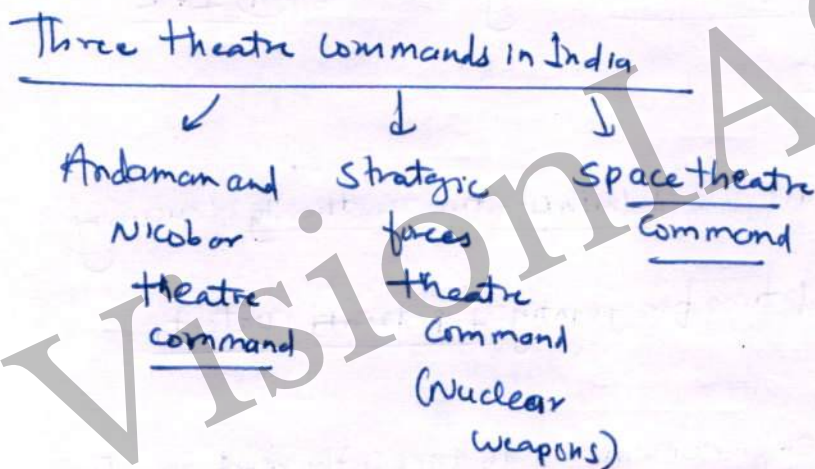 Three theatre commands in India
Andaman and
Nicobar
theatre
command
Strategic
forces
theatre
Command
(Nuclear
weapons)
Space theatre
Command
VisionIAS